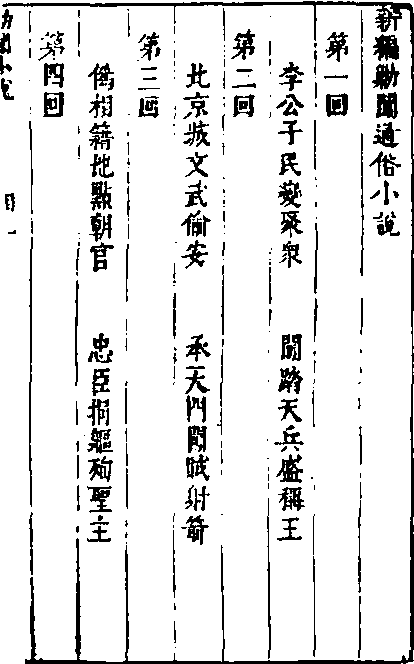 新編勦闖通俗小說
第一回
李公子民變聚衆　闖踏天兵盛稱王
第二回
北京城文武偷安　承天門闖賊射箭
第三回
僞相籍地點朝官　忠臣捐軀殉聖主
第四回
小說　目一